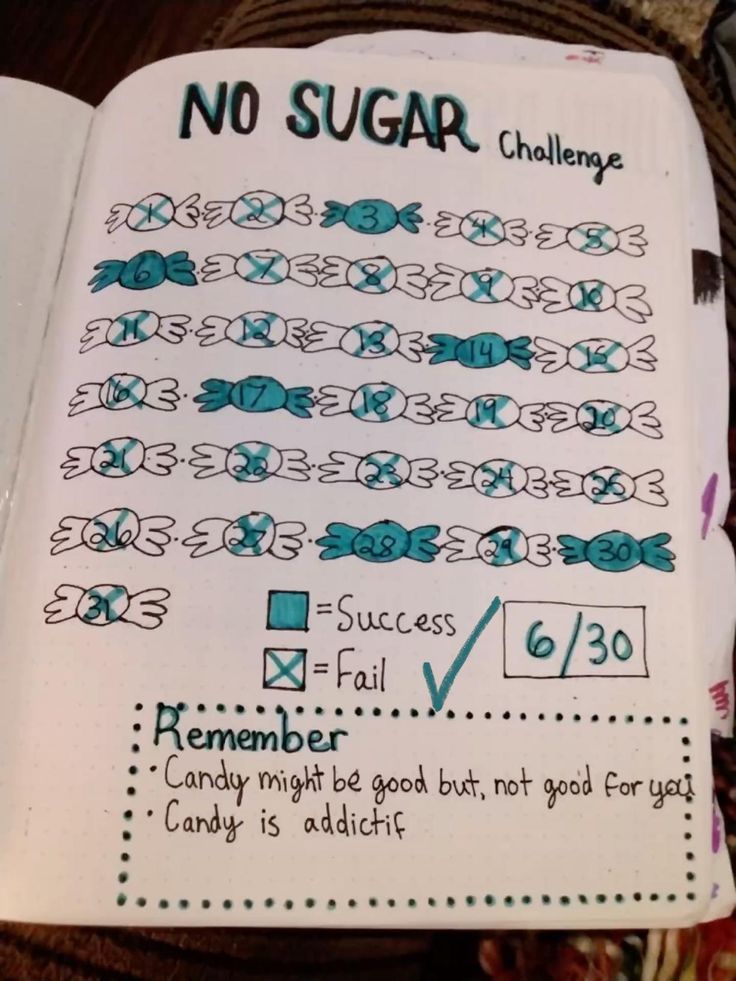 NO SUGAR Challenge
1 2 3 4 5
6 7 8 9 10
11 12 13 14 15
16 17 18 19 20
21 22 23 24 25
26 27 28 29 30
31
= Success
= Fail
6/30
Remember
· Candy might be good but, not good for you
· Candy is addictif